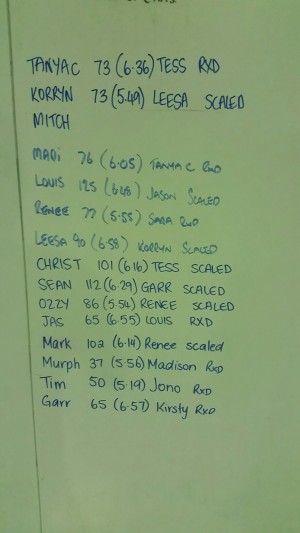 TANYA C 73 (6.36) TESS RXD
KORRYN 73 (5.49) LEESA SCALED
MITCH
MADI 76 (6.05) TANYA C RXD
LOUIS 125 (6.48) JASON SCALED
RENEE 77 (5.55) SARA RXD
LEESA 90 (6.58) KORRYN SCALED
CHRIST 101 (6.16) TESS SCALED
SEAN 112 (6.29) GARR SCALED
OZZY 86 (5.54) RENEE SCALED
JAS 65 (6.55) LOUIS RXD
Mark 102 (6.14) Renee scaled
Murph 37 (5.56) Madison RxD
Tim 50 (5.19) Jono RxD
Garr 65 (6.57) Kirsty RxD